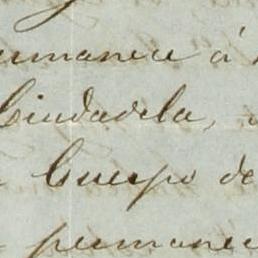 permanece á
Ciudadela,
Cuerpo de
permanec